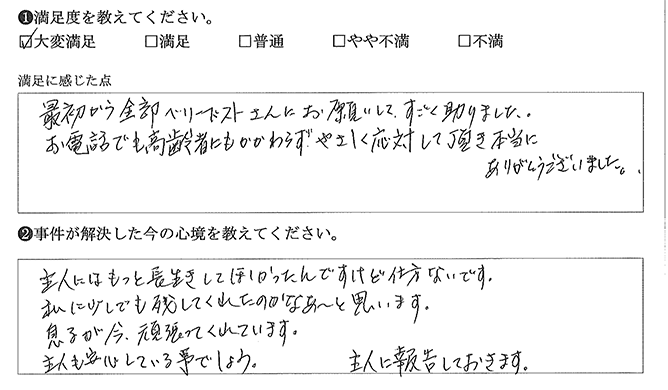 ❶満足度を教えてください。
☑大変満足 □満足 □普通 □やや不満 □不満
満足に感じた点
最初から全部ベリーベストさんにお願いして、すごく助りました。
お電話でも高齢者にもかかわらず、やさしく応対して頂き本当に
ありがとうございました。
❷事件が解決した今の心境を教えてください。
主人にはもっと長生きしてほしかったんですけど仕方ないです。
私に少しでも残してくれたのかなあ〜と思います。
息子が今、頑張ってくれています。
主人も安心している事でしょう。 主人に報告しておきます。